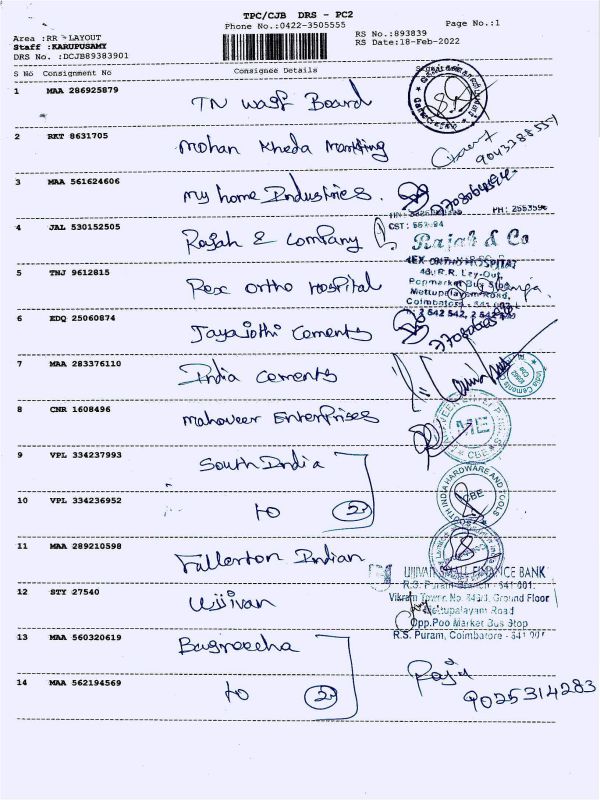 TPC/CJB DRS - PC2
Phone No.:0422-3505555
Page No.:1
Area :RR - LAYOUT
Staff :KARUPUSAMY
DRS No. :DCJB89383901
RS No.:893839
RS Date:18-Feb-2022
S No Consignment No Consignee Details
1 MAA 286925879 TN waqf Board
2 RKT 8631705 Mohan Kheda Markting
9043388557
3 MAA 561624606 my home Industries.
PH: 2553596
CST: 557.84
4 JAL 530152505 Rajah & Company
Rajah & Co
5 TNJ 9612815 Rex ortho Hospital
REX ORTHO HOSPITAL
48, R.R. Lay-Out,
Popmarket Bus Stop
Mettupalayam Road,
Coimbatore
6 EDQ 25060874 Jayajothi Cements
7 MAA 283376110 India Cements
8 CNR 1608496 Mahaveer Enterprises
ME
CBE
9 VPL 334237993 South India
SOUTH INDIA HARDWARE AND TOOLS
CBE
10 VPL 334236952 to 2
11 MAA 289210598 Fullerton Indian
12 STY 27540 Ujjivan
UJJIVAN SMALL FINANCE BANK
R.S. Puram Branch - 641 001.
Vikram Tower, Ground Floor
Mettupalayam Road
Opp.Poo Market Bus Stop
R.S. Puram, Coimbatore - 641 001
13 MAA 560320619 Bagreecha
14 MAA 562194569 to 2
Raju
9025314283